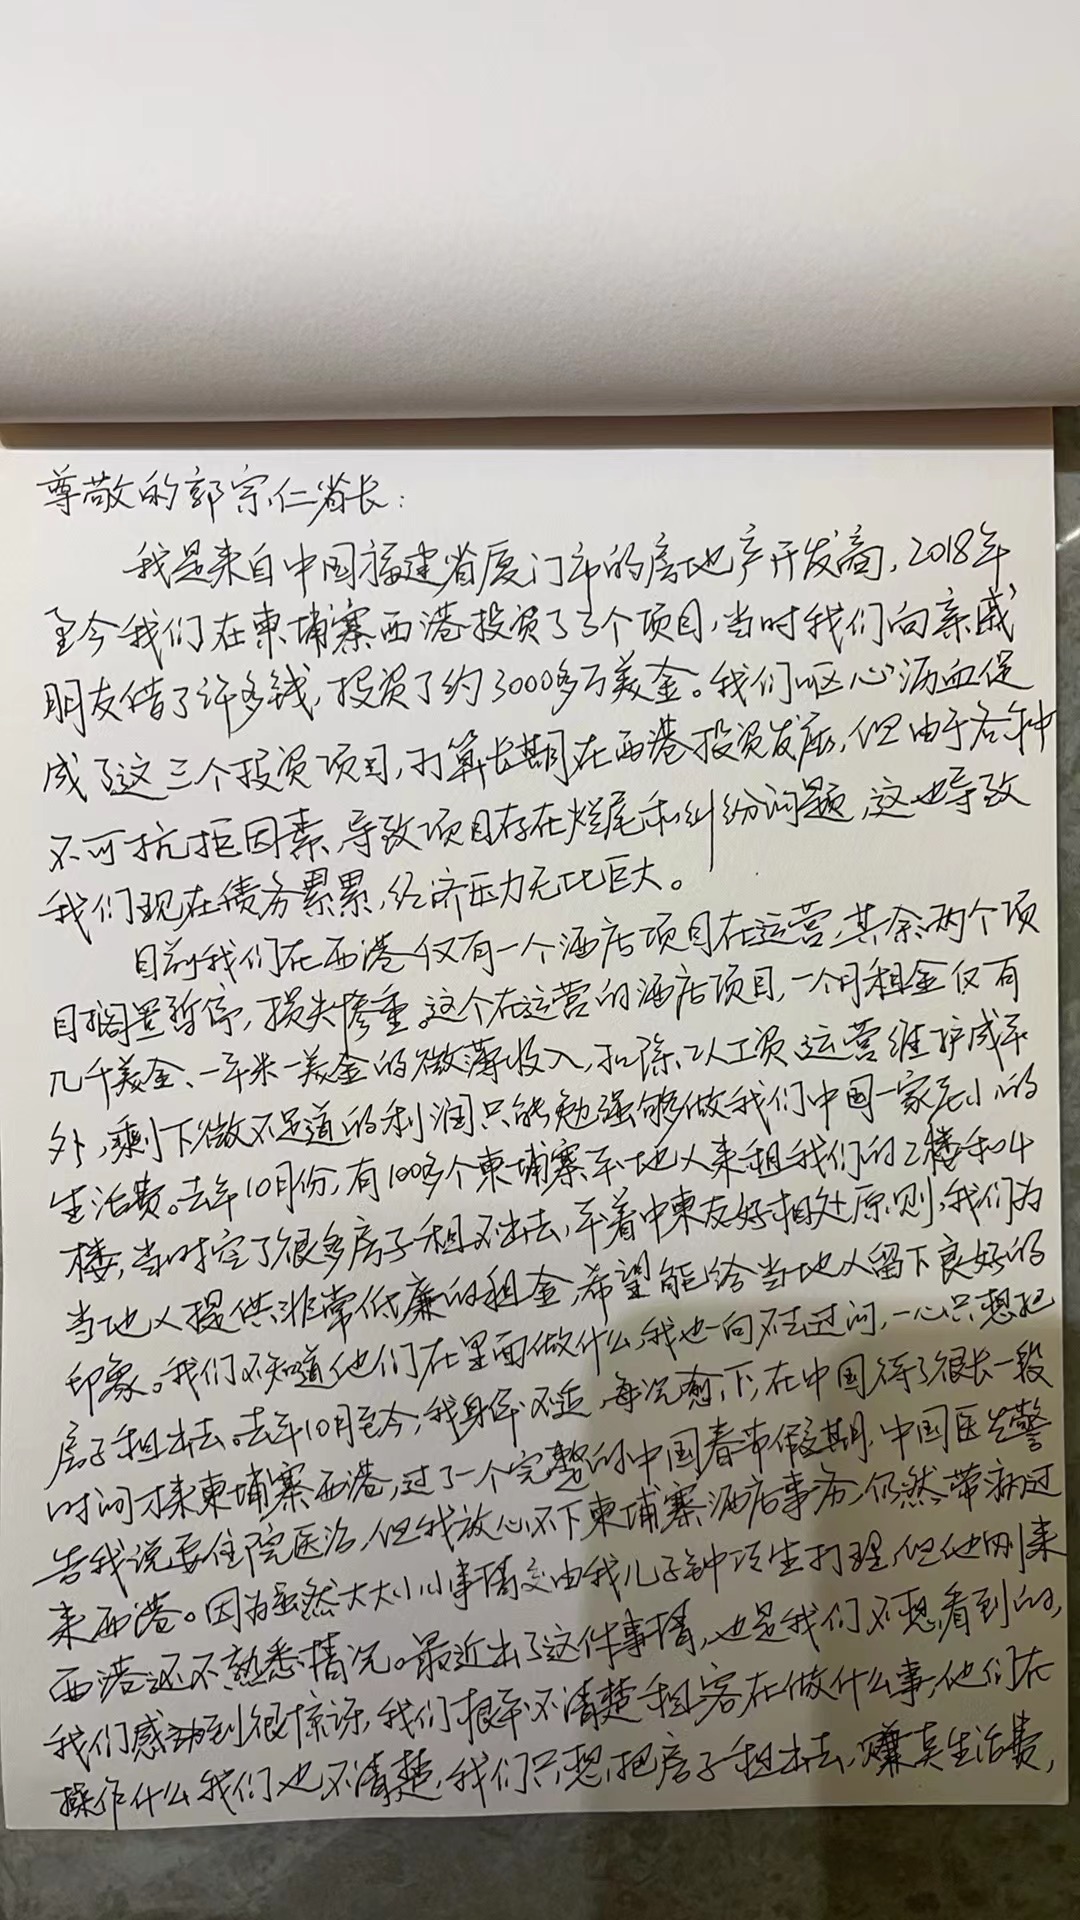 尊敬的郭宗仁省长：
我是来自中国福建省厦门市的房地产开发商，2018年
至今我们在柬埔寨西港投资了3个项目，当时我们向亲戚
朋友借了许多钱，投资了约3000多万美金。我们呕心沥血促
成了这三个投资项目，打算长期在西港投资发展，但由于各种
不可抗拒因素，导致项目存在烂尾和纠纷问题，这也导致
我们现在债务累累，经济压力无比巨大。
目前我们在西港仅有一个酒店项目在运营，其余两个项
目搁置暂停，损失惨重。这个在运营的酒店项目，一个月租金仅有
几千美金、一平米一美金的微薄收入，扣除人工资、运营维护成本
外，剩下微不足道的利润只能勉强够做我们中国一家老小的
生活费。去年10月份，有100多个柬埔寨本地人来租我们的2楼和4
楼，当时空了很多房子租不出去，本着中柬友好相处原则，我们为
当地人提供非常低廉的租金，希望能给当地人留下良好的
印象。我们不知道他们在里面做什么，我也一向不去过问，一心只想把
房子租出去。去年10月至今，我身体不适，每况愈下，在中国待了很长一段
时间才来柬埔寨西港，过了一个完整的中国春节假期，中国医生警
告我说要住院医治，但我放心不下柬埔寨酒店事务，仍然带病过
来西港。因为虽然大大小小事情交由我儿子钟顶生打理，但他刚来
西港还不熟悉情况。最近出了这件事情，也是我们不想看到的，
我们感到很惊讶，我们根本不清楚租客在做什么事，他们在
操作什么我们也不清楚，我们只想把房子租出去，赚其生活费，